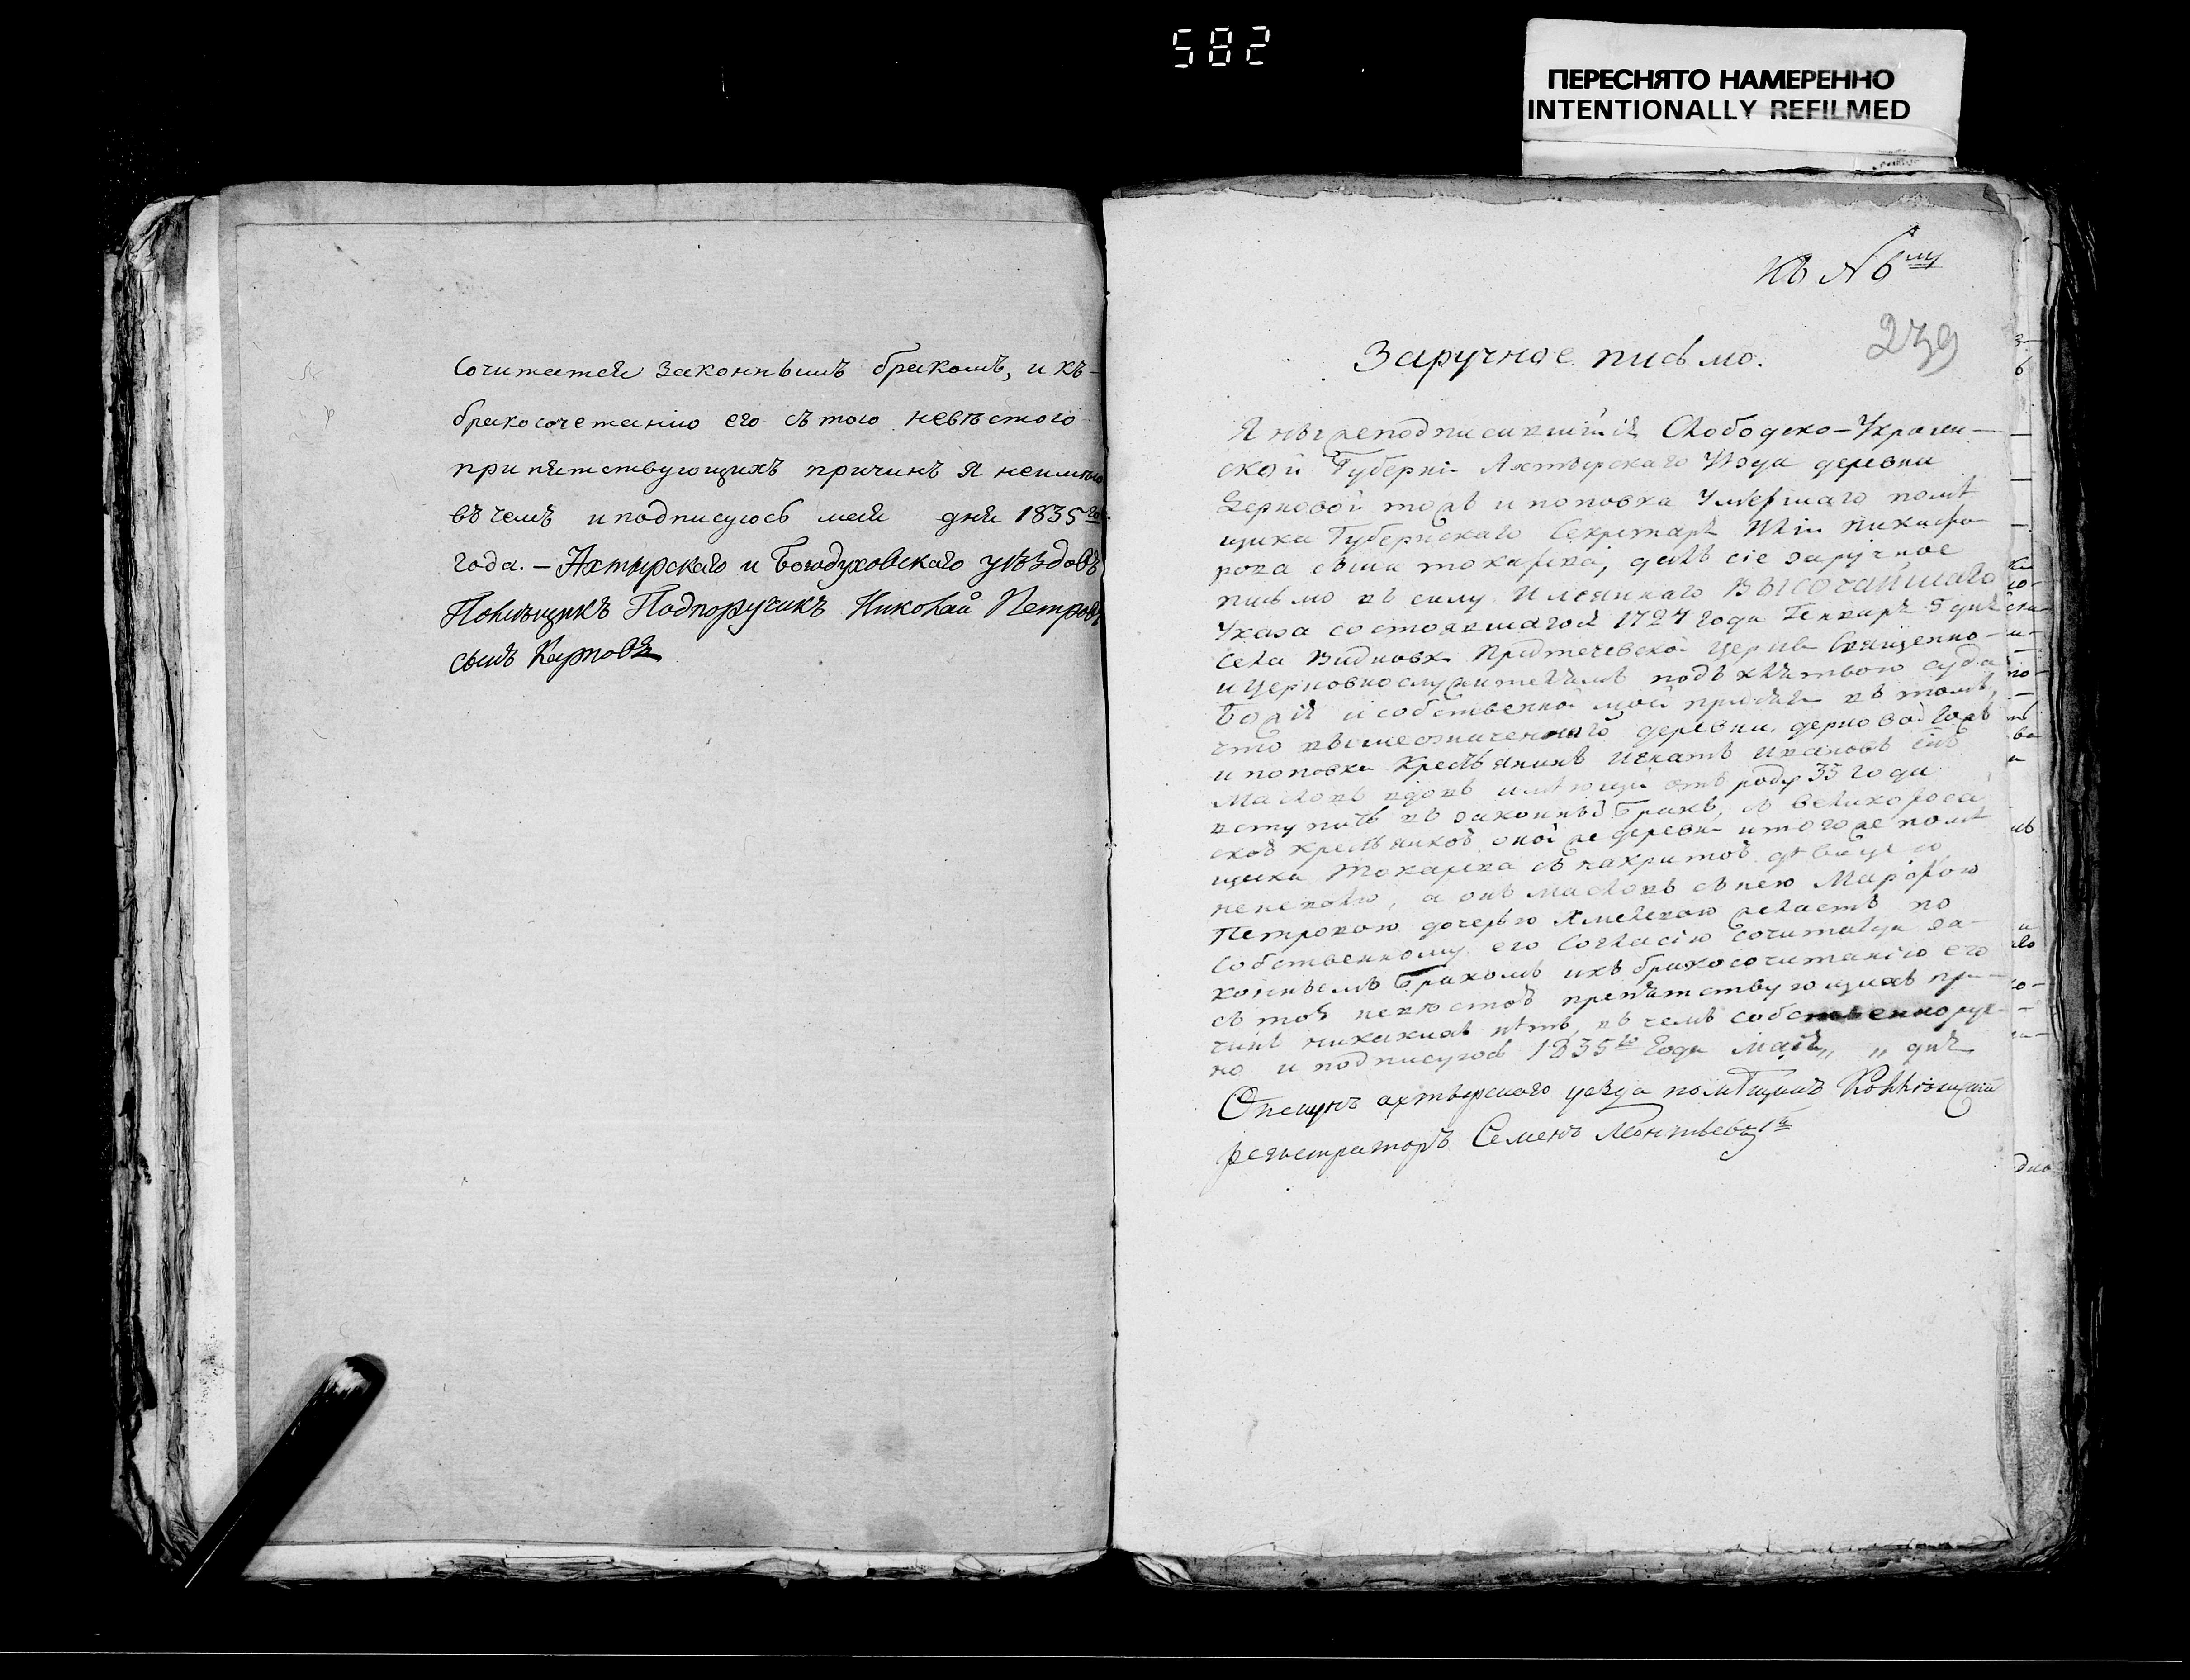 582
ПЕРЕСНЯТО НАМЕРЕННО
INTENTIONALLY REFILMED
сочитатся законнымъ бракомъ, и къ-
бракосочетанію его съ тою невѣстою
припятствующихъ причинъ я неимѣю
въ чемъ и подписуюсь мая дня 1835го
года. – Ахтырскаго и Богодуховскаго уѣздовъ
Помѣщикъ Подпоручикъ Николай Петровъ
сынъ Карповъ
къ N 6му
239
Заручное письмо.
Я нижеподписавшійся Слободско-Украин-
ской Губерніи Ахтырскаго уѣзда деревни
и поповка умершаго помѣ
щика Губернскаго Секретаря Никифо
рова сына токарева, далъ сіе заручное
письмо въ силу Имяннаго ВЫСОЧАЙШАГО
Указа состоявшагося 1724 года Генваря 5 дня
села Предтечевской церкви Священно-
и церковнослужителямъ подъ клятвою суда
Божія и собственной моей присяги въ томъ,
что вышеозначенного деревни
и поповки крестьянинъ Игнатъ Ивановъ снъ
Масловъ вдовъ имѣющій отъ роду 35 года
вступить въ законный бракъ, съ великороса
ской крестьянкой оной же деревни и того же помѣ
щика Токарева съ накритой дѣвицею
неневолю, а онъ Масловъ съ нею Марфою
Петровою дочерью желаетъ по
собственному его согласію сочитатца за-
коннымъ бракомъ икъ бракосочитанію его
съ той невѣстой препятствующихъ при-
чинъ никакихъ нѣтъ, въ чемъ собственноруч-
но и подписуюсь 1835го года мая „ „ дня
Опекунъ ахтырскаго уѣзда помѣщикъ Коллѣжскій
регистраторъ Семенъ Леонтьевъ